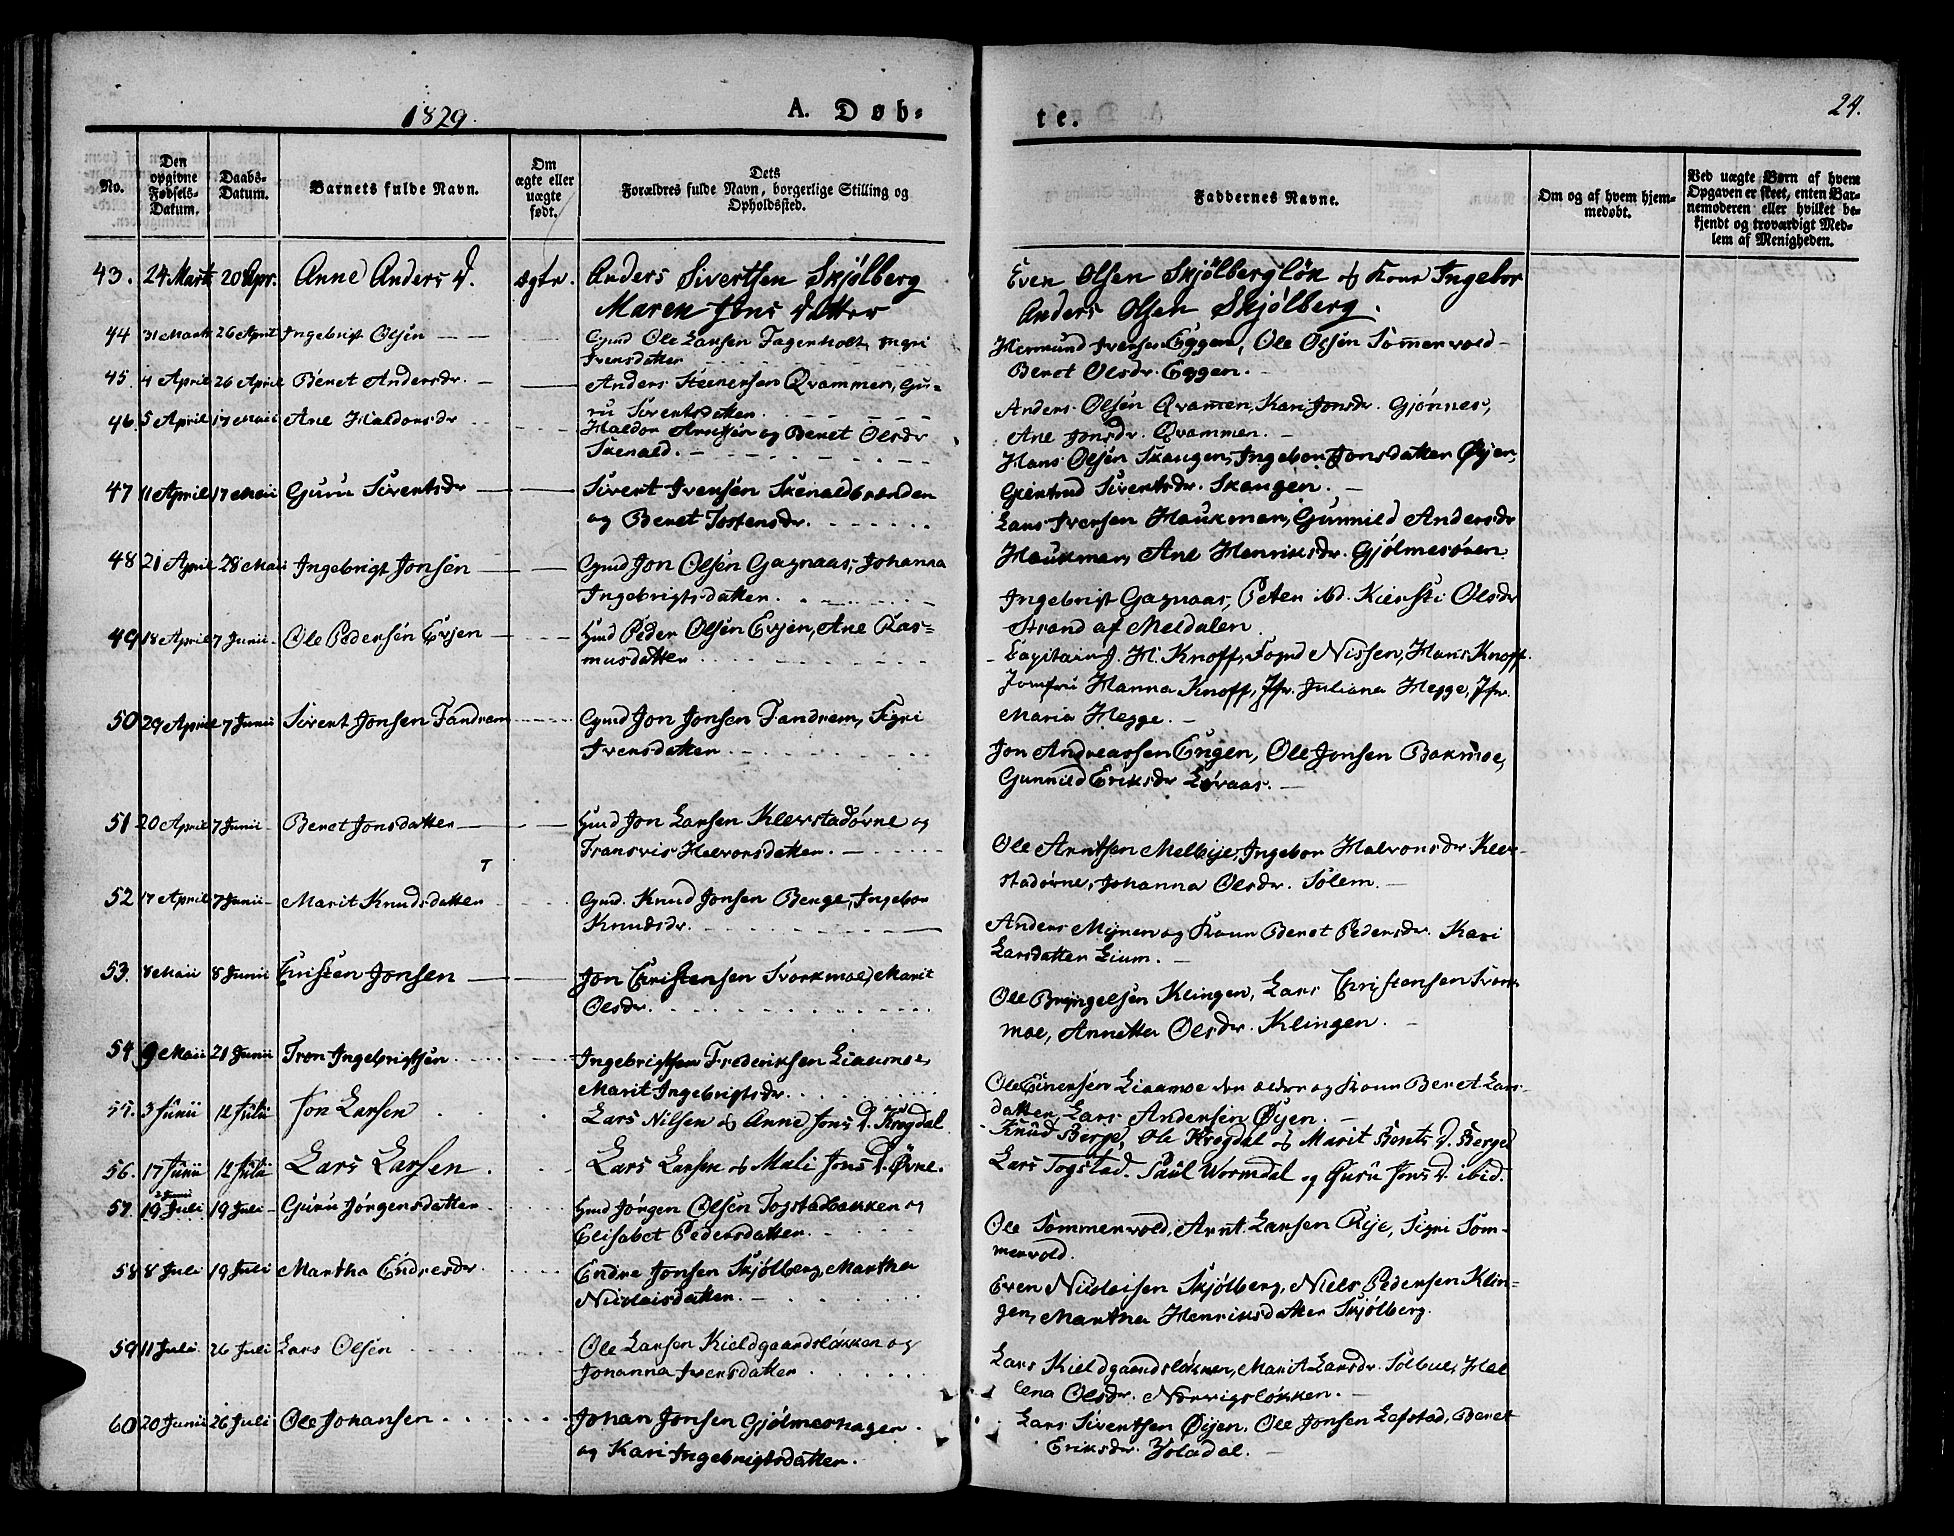 1829. A. Døb-
te. 24.
No. Den opgivne Fødsels-Datum. Daabs-Datum. Barnets fulde Navn. Om ægte eller uægte født. Dets Forældres fulde Navn, borgerlige Stilling og Opholdssted. Faddernes Navne. Om og af hvem hjemmedøbt. Ved uægte Børn af hvem Opgaven er skeet, enten Barnemoderen eller hvilket bekjendt og troværdigt Medlem af Menigheden.
43. 24 Marts 20 Apr. Anne Anders d. ægte. Anders Sivertsen Skjølberg
Maren Jons datter
Even Olsen Skjølbergløk og Kone Ingebor
Anders Olsen Skjølberg.
44 31 Marts 26 April Ingebrigt Olsen Gmd Ole Larsen Fagerholt, Ingri
Iversdatter
Hermund Iversen Eggen, Ole Olsen Sommervold
Beret Olsdr. Eggen.
45. 4 April 26 April Beret Andersdr. Anders Steenersen Qvammen, Gu-
ru Sivertsdatter.
Anders Olsen Qvamen, Kari Jonsdr. Gjønnes,
Ane Jonsdr. Qvammen.
46. 5 April 17 Maii Ane Haldorsdr Haldor Arntsen og Beret Olsdr
Skenald.
Hans Olsen Skaugen, Ingebor Jonsdatter Øyen,
Giertrud Sivertsdr. Skaugen.
47 11 April 17 Maii Guru Sivertsdr Sivert Iversen Skenaldbrænden
og Beret Tostensdr.
Lars Iversen Haukmar, Gunnild Andersdr
Haukmar, Ane Henriksdr. Gjølmesøren
48 21 April 28 Maii Ingebrigt Jonsen Gmd Jon Olsen Gagnaas, Johanna
Ingebrigtsdatter.
Ingebrigt Gagnaas, Peter ibd. Kiersti Olsdr
Strand af Meldalen
49 18 April 7 Junii Ole Pedersen Evjen Hmd Peder Olsen Evjen, Ane Ras-
musdatter
Capitain J. H. Knoff, Fogd Nissen, Hans Knoff
Jomfru Hanna Knoff, Jfr. Juliana Hegge, Jfr.
Maria Hegge.
50 29 April 7 Junii Sivert Jonsen Fandrem Gmd Jon Jonsen Fandrem, Sigri
Iversdatter
Jon Andreassen Engen, Ole Jonsen Bakmoe,
Gunnild Eriksdr Løraas.
51 20 April 7 Junii Beret Jonsdatter Hmd Jon Larsen Klevstadørne og
Transvis Halvorsdatter.
Ole Arntsen Melbye, Ingebor Halvorsdr Klev-
stadørne, Johanna Olsdr. Solem.
52 17 April 7 Junii Marit Knudsdatter Gmd. Knud Jonsen Berge, Ingebor
Knudsdr.
Anders Myren og Kone Beret Pedersdr. Kari
Larsdatter Lium.
53. 8 Maii 8 Junii Christen Jonsen Jon Christensen Svorkmoe, Marit
Olsdr.
Ole Bryngelsen Klingen, Lars Christensen Svork-
moe, Annetta Olsdr. Klingen.
54 9 Maii 21 Junii Tron Ingebrigtsen Ingebrigtsen Frederiksen Liaamoe,
Marit Ingebrigtsdr.
Ole Einersen Liaamoe den ældre og Kone Beret Lars-
datter, Lars Andersen Øyen.
55. 3 Junii 12 Julii Jon Larsen Lars Nilsen og Anne Jons d. Krogdal
Knud Berge, Ole Krogdal og Marit Bents d. Berge
56. 17 Junii 12 Julii Lars Larsen Lars Larsen og Mali Jons d. Øvne.
Lars Togstad. Paul Wormdal og Guru Jons d. ibid.
57. 19 Juli 19 Juli Guru Jørgensdatter Hmd Jørgen Olsen Togstadbakken og
Elisabet Pedersdatter.
Ole Sommervold, Arnt Larsen Rije, Sigri Som-
mervold.
58 8 Juli 19 Juli Martha Endresdr. Endre Jonsen Skjølberg, Martha
Nicolaisdatter.
Even Nicolaisen Skjølberg, Niels Pedersen Klin-
gen, Martha Henriksdatter Skjølberg.
59 11 Juli 26 Juli Lars Olsen Ole Larsen Kieldgaardsløkken og
Johanna Iversdatter
Lars Kieldgaardsløkken, Marit Larsdr. Solbue, Hal
lena Olsdr. Norvigsløkken.
60 20 Junii 26 Juli Ole Johansen Johan Jonsen Gjølmeshagen
og Kari Ingebrigtsdatter.
Lars Sivertsen Øyen, Ole Jonsen Lefstad, Beret
Eriksdr. Yoladal.